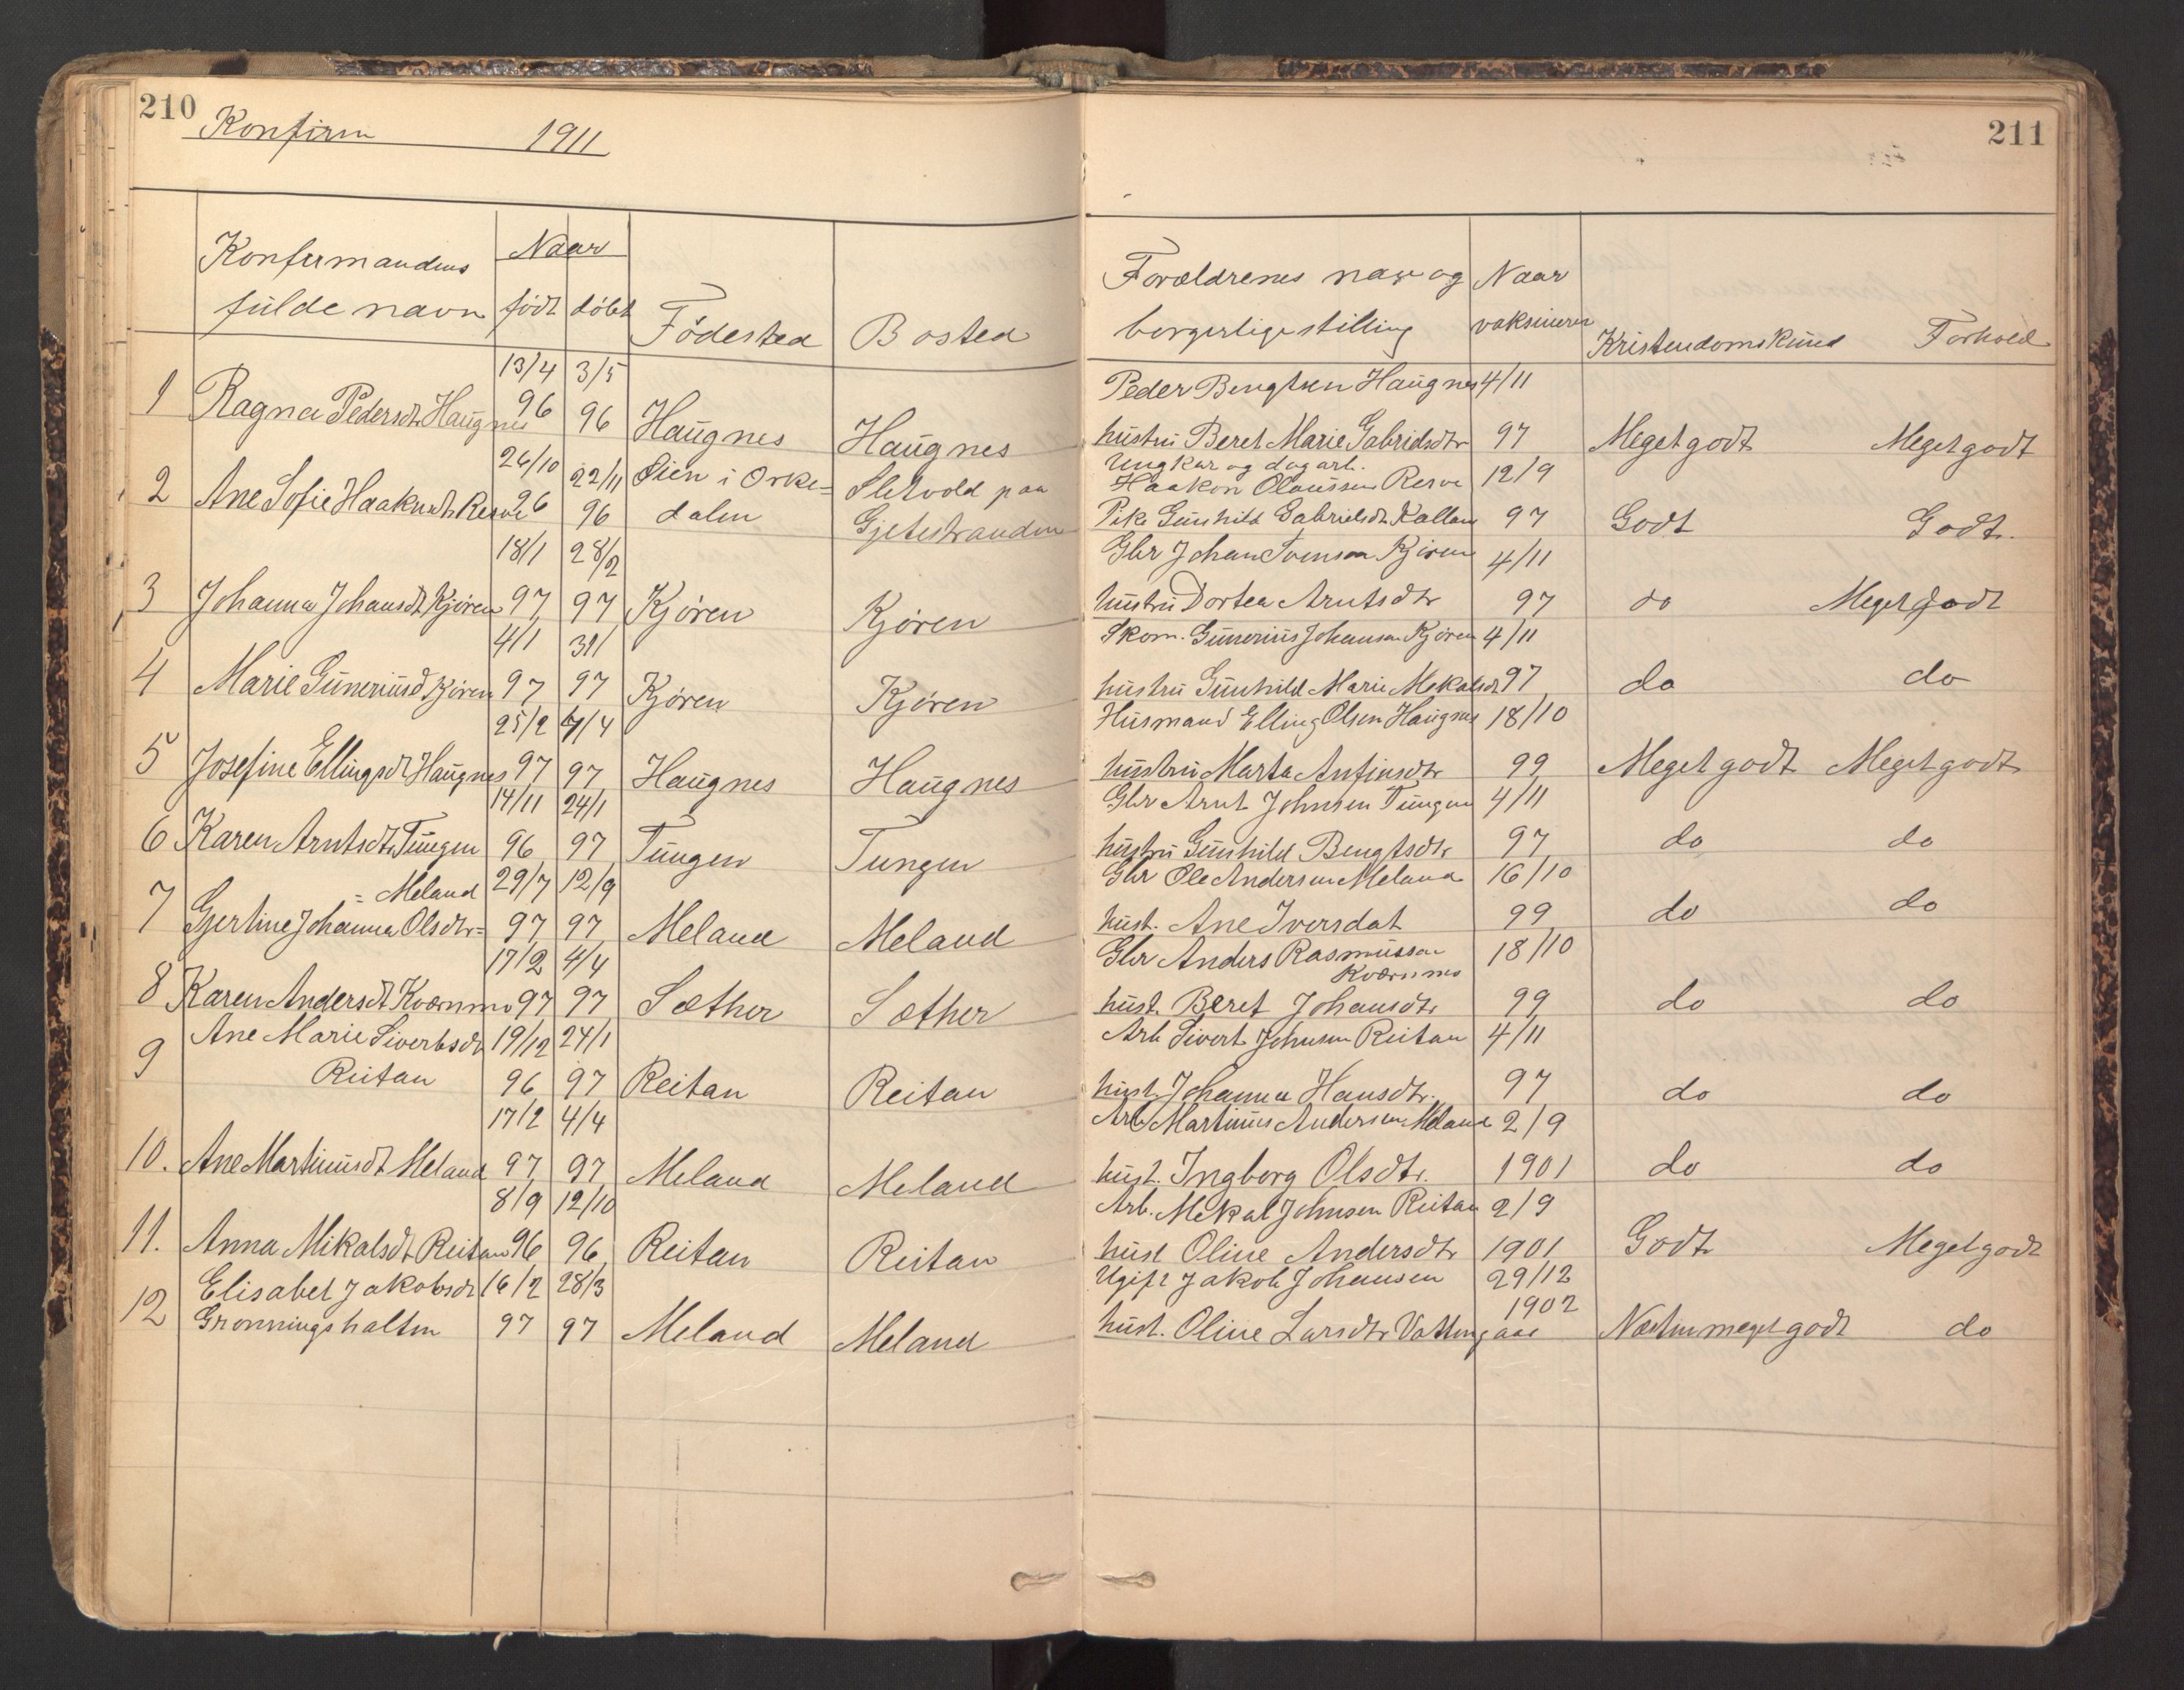 210
Konfirm 1911
211
Konfirmandens Naar
fulde navn født døbt Fødested Bosted
Forældrenes navn og Naar
borgerlige stilling vaksineret Kristendomskund Forhold
13/4 3/5 Peder Bengtsen Haugnes 4/11
1 Ragna Pedersdtr Haugnes 96 96 Haugnes Haugnes hustru Beret Marie Gabrielsdtr 97 Meget godt Meget godt
26/10 22/11 Lien i Orke= Sletvold paa Ungkar og dagarb. Haakon Olaussen Resve 12/9
2 Ane Sofie Haaknsdt Resve 96 96 dalen Gjetestranden Pike Gunhild Gabrielsdt Kallan 97 Godt Godt.
18/1 28/2 Gbr Johan Svenson Kjøren 4/11
3 Johanna Johansdt Kjøren 97 97 Kjøren Kjøren hustru Dortea Arntsdtr 97 do Meget godt
4/1 31/1 Skom. Gunerius Johansen Kjøren 4/11
4 Marie Guneriusd Kjøren 97 97 Kjøren Kjøren hustru Gunhild Marie Mekalsdt 97 do do
25/2 4/4 Husmand Elling Olsen Haugnes 18/10
5 Josefine Ellingsdt Haugnes 97 97 Haugnes Haugnes hustru Marta Anfinsdtr 99 Meget godt Meget godt
14/11 24/1 Gbr Arnt Johnsen Tungen 4/11
6 Karen Arntsdtr Tungen 96 97 Tungen Tungen hustru Gunhild Bengtsdtr 97 do do
= Meland 29/7 12/9 Gbr Ole Andersen Meland 16/10
7 Gjertine Johanna Olsdtr= 97 97 Meland Meland hust. Ane Iversdat 99 do do
17/2 4/4 Gbr Anders Rasmussen Kværnmo 18/10
8 Karen Andersdt Kværnmo 97 97 Sæther Sæther hust. Beret Johansdtr 99 do do
Ane Marie Sivertsdt 19/12 24/1 Arb Sivert Johnsen Reitan 4/11
9 Reitan 96 97 Reitan Reitan hust. Johanna Hansdtr. 97 do do
17/2 4/4 Arb Martinus Andersen Meland 2/9
10. Ane Martinusdt Meland 97 97 Meland Meland hust. Ingborg Olsdtr. 1901 do do
8/9 12/10 Arb. Mekal Johnsen Reitan 2/9
11. Anna Mikalsdt Reitan 96 96 Reitan Reitan hust Oline Andersdtr 1901 Godt Meget godt
Elisabet Jakobsdt 16/2 28/3 Ugift Jakob Johansen 29/12
12 Grønningshalten 97 97 Meland Meland hust. Oline Larsdtr Vattengaae 1902 Næsten meget godt do